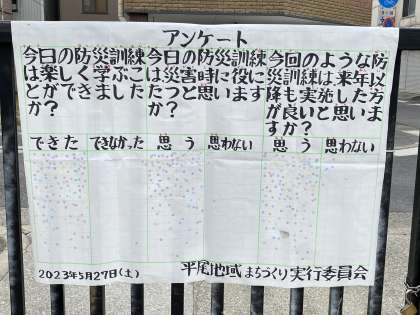 アンケート
今日の防災訓練
は楽しく学ぶこ
とができました
か?
今日の防災訓練
は災害時に役に
たつと思います
か?
今回のような防
災訓練は来年以
降も実施した方
が良いと思いま
すか?
できた できなかった 思う 思わない 思う 思わない
2023年5月27日(土) 平尾地域まちづくり実行委員会